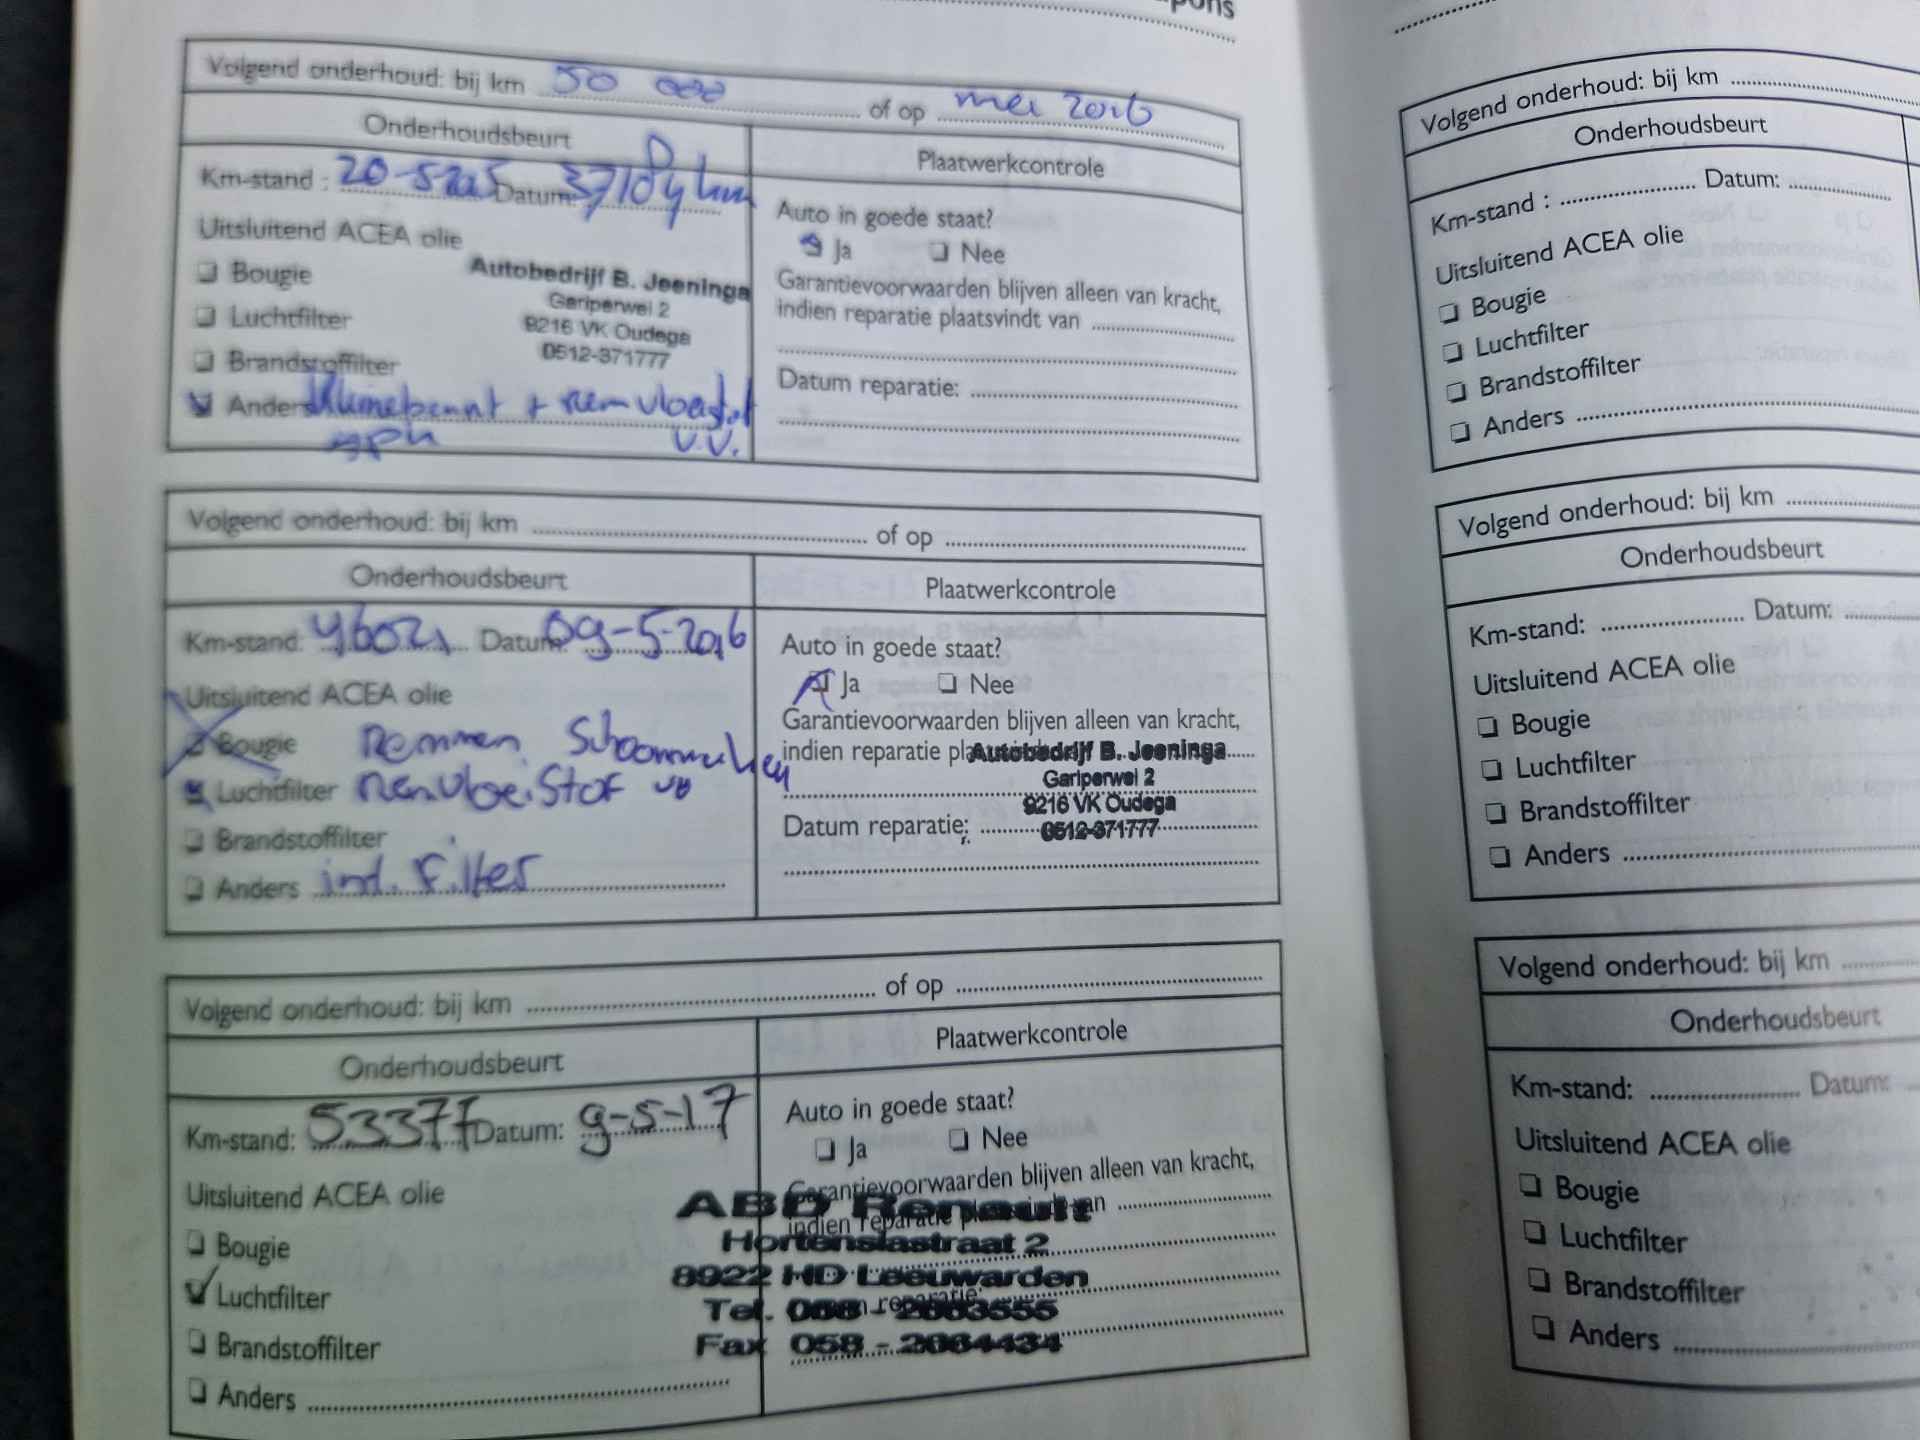 Volgend onderhoud: bij km 50 000 of op mei 2016
Onderhoudsbeurt
Plaatwerkcontrole
Km-stand : 20-5 Datum:
Uitsluitend ACEA olie
Bougie
Luchtfilter
Brandstoffilter
Anders + remvloeistof
v.v.
Autobedrijf B. Jeeninga
Gariperwei 2
9216 VK Oudega
0512-371777
Auto in goede staat?
Ja Nee
Garantievoorwaarden blijven alleen van kracht,
indien reparatie plaatsvindt van
Datum reparatie:
Volgend onderhoud: bij km of op
Onderhoudsbeurt
Plaatwerkcontrole
Km-stand: 46021 Datum: 09-5-2016
Uitsluitend ACEA olie
Bougie remmen Schoonmaken
Luchtfilter remvloeistof vv
Brandstoffilter
Anders int. Filter
Auto in goede staat?
Ja Nee
Garantievoorwaarden blijven alleen van kracht,
indien reparatie
Autobedrijf B. Jeeninga
Gariperwei 2
9216 VK Oudega
0512-371777
Datum reparatie:
Volgend onderhoud: bij km of op
Onderhoudsbeurt
Plaatwerkcontrole
Km-stand: 53377 Datum: 9-5-17
Uitsluitend ACEA olie
Bougie
Luchtfilter
Brandstoffilter
Anders
Auto in goede staat?
Ja Nee
Garantievoorwaarden blijven alleen van kracht,
indien reparatie
ABD Renault
Hortensiastraat 2
8922 HD Leeuwarden
Tel. 058 -
Fax 058 - 2664434
Volgend onderhoud: bij km
Onderhoudsbeurt
Km-stand : Datum:
Uitsluitend ACEA olie
Bougie
Luchtfilter
Brandstoffilter
Anders
Volgend onderhoud: bij km
Onderhoudsbeurt
Km-stand: Datum:
Uitsluitend ACEA olie
Bougie
Luchtfilter
Brandstoffilter
Anders
Volgend onderhoud: bij km
Onderhoudsbeurt
Km-stand: Datum:
Uitsluitend ACEA olie
Bougie
Luchtfilter
Brandstoffilter
Anders